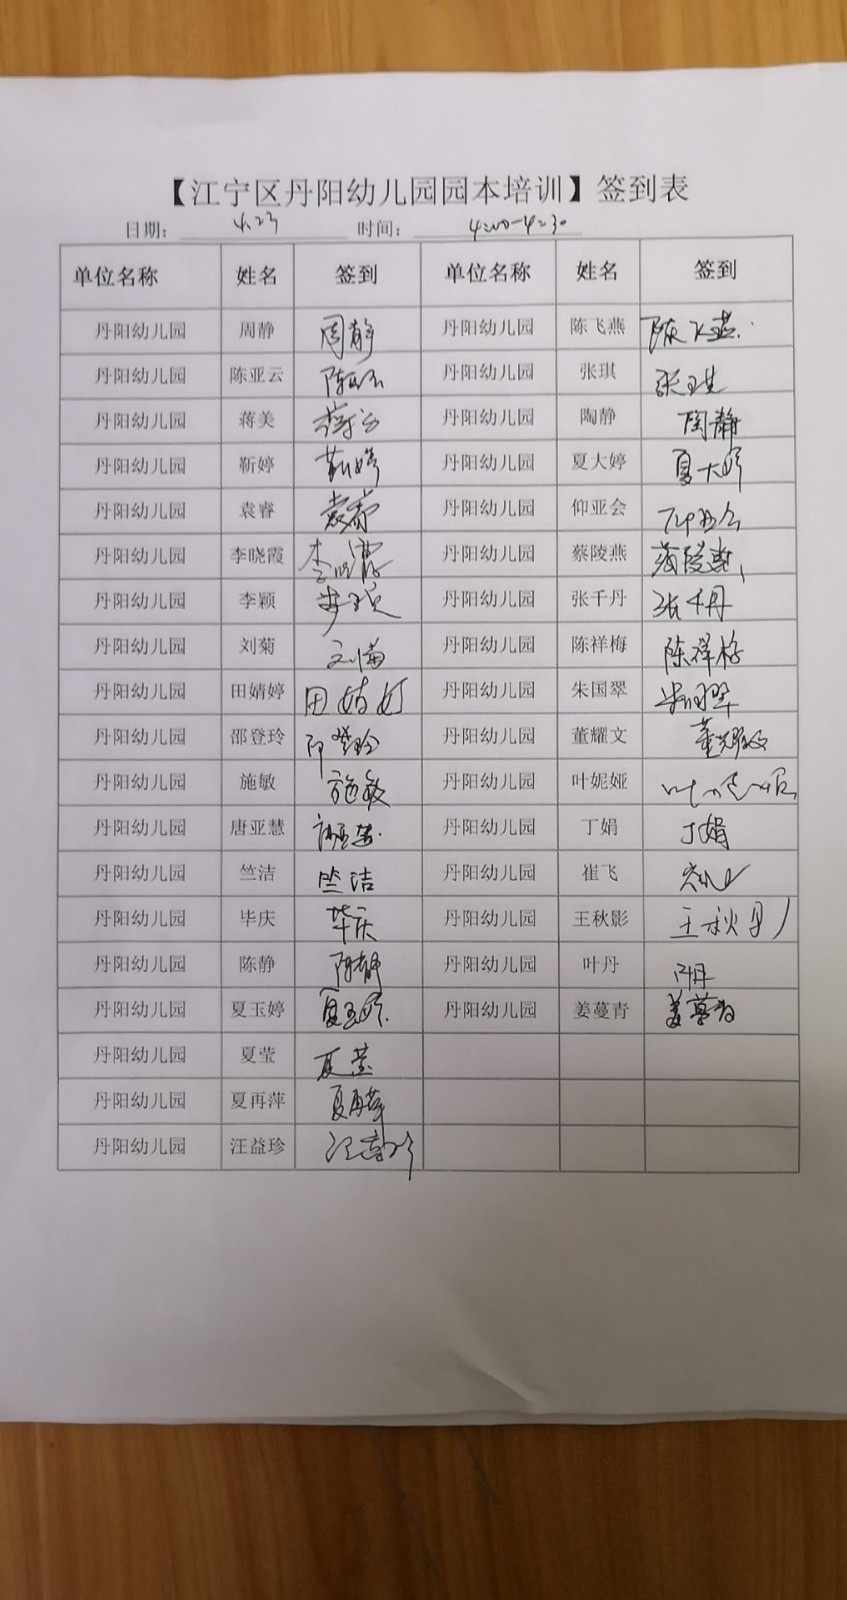 【江宁区丹阳幼儿园园本培训】签到表
日期： 4.23 时间： 4:00-4:30
单位名称 姓名 签到 单位名称 姓名 签到
丹阳幼儿园 周静 周静 丹阳幼儿园 陈飞燕 陈飞燕
丹阳幼儿园 陈亚云 陈亚云 丹阳幼儿园 张琪 张琪
丹阳幼儿园 蒋美 丹阳幼儿园 陶静 陶静
丹阳幼儿园 靳婷 靳婷 丹阳幼儿园 夏大婷 夏大婷
丹阳幼儿园 袁睿 袁睿 丹阳幼儿园 仰亚会 仰亚会
丹阳幼儿园 李晓霞 李晓霞 丹阳幼儿园 蔡陵燕 蔡陵燕
丹阳幼儿园 李颖 李颖 丹阳幼儿园 张千丹 张千丹
丹阳幼儿园 刘菊 刘菊 丹阳幼儿园 陈祥梅 陈祥梅
丹阳幼儿园 田婧婷 田婧婷 丹阳幼儿园 朱国翠 朱国翠
丹阳幼儿园 邵登玲 邵登玲 丹阳幼儿园 董耀文 董耀文
丹阳幼儿园 施敏 施敏 丹阳幼儿园 叶妮娅 叶妮娅
丹阳幼儿园 唐亚慧 唐亚慧 丹阳幼儿园 丁娟 丁娟
丹阳幼儿园 竺洁 竺洁 丹阳幼儿园 崔飞 崔飞
丹阳幼儿园 毕庆 毕庆 丹阳幼儿园 王秋影 王秋影
丹阳幼儿园 陈静 陈静 丹阳幼儿园 叶丹 叶丹
丹阳幼儿园 夏玉婷 夏玉婷 丹阳幼儿园 姜蔓青 姜蔓青
丹阳幼儿园 夏莹 夏莹
丹阳幼儿园 夏再萍 夏再萍
丹阳幼儿园 汪益珍 汪益珍